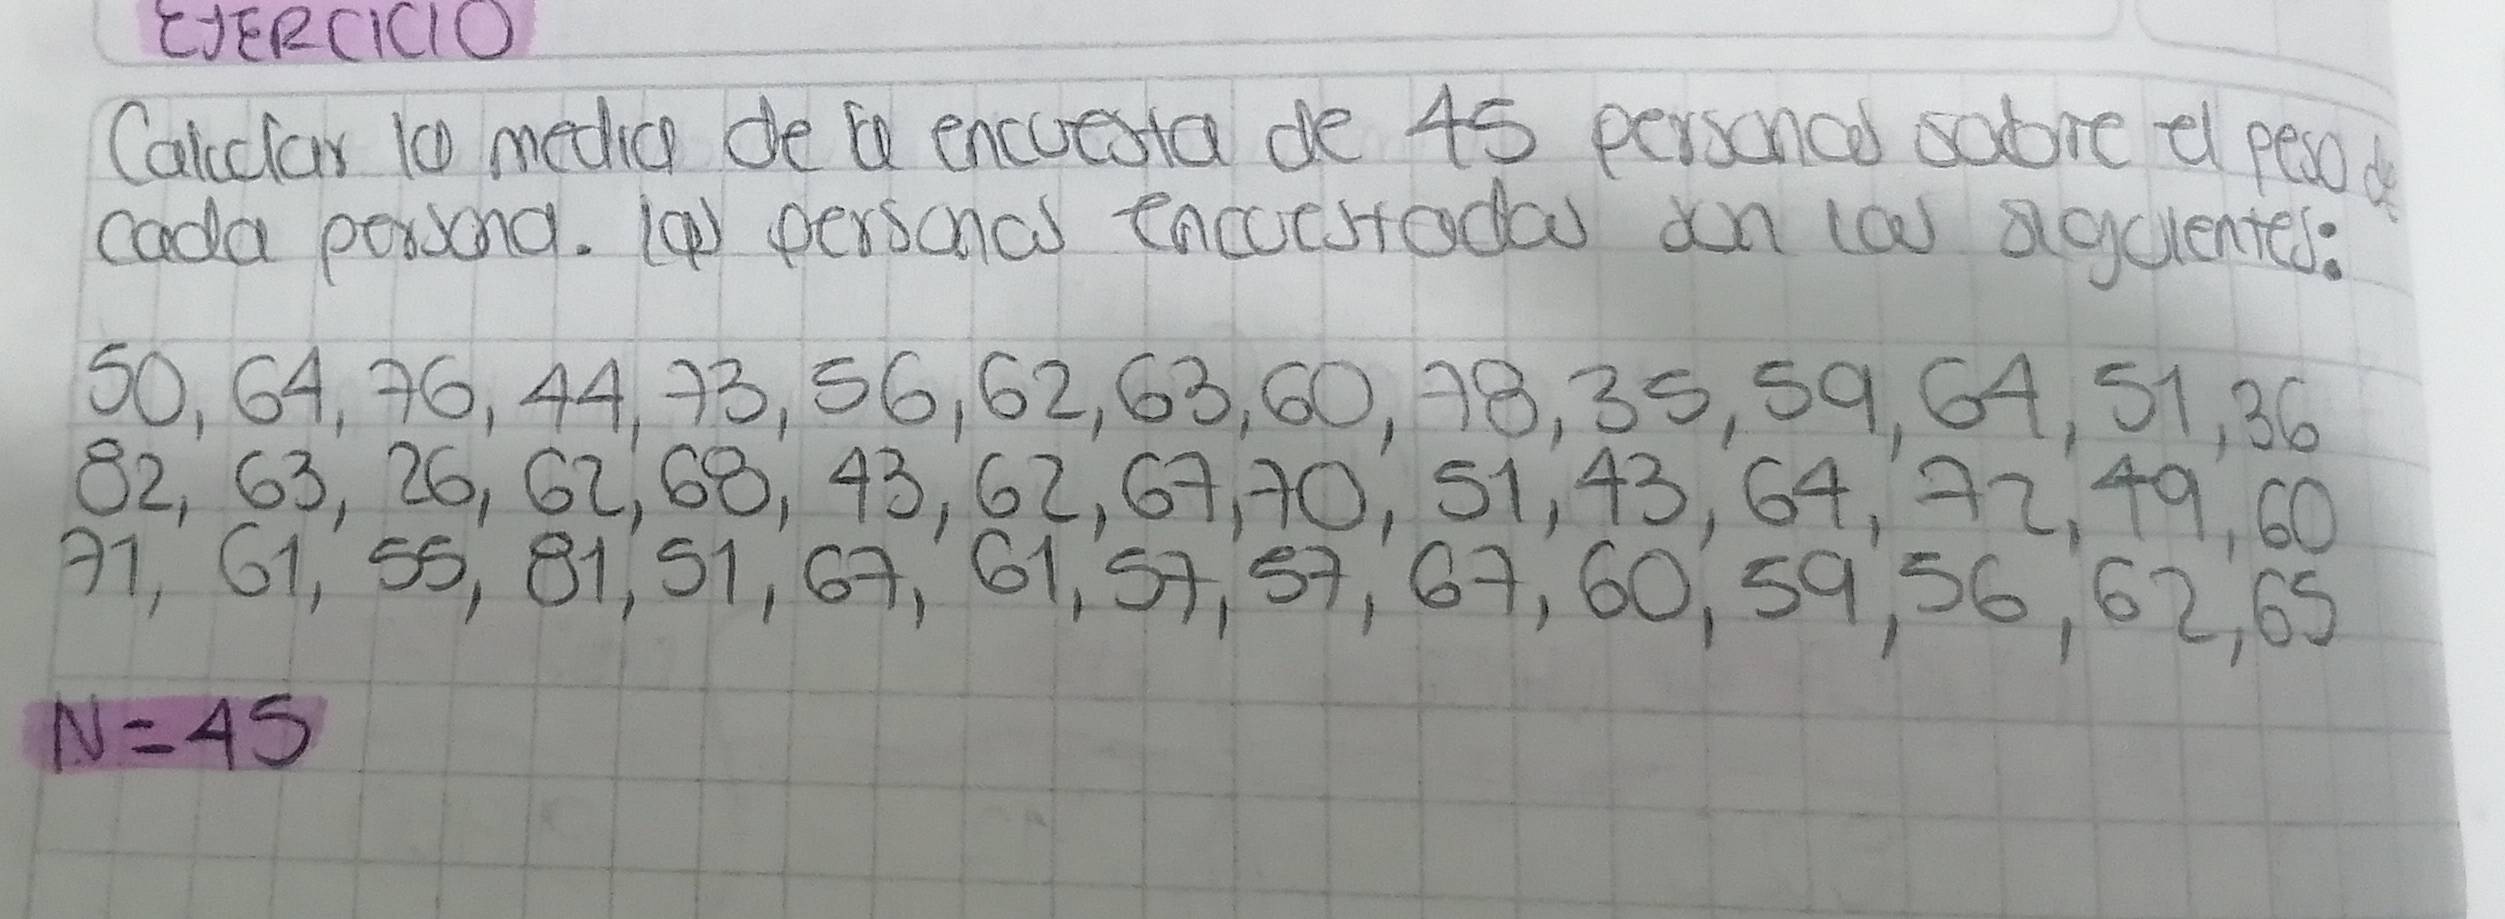 EJERCICIO
Calcular la media de la encuesta de 45 personas sobre el peso de
cada persona. las personas encuestadas son las siguientes:
50, 64, 76, 44, 73, 56, 62, 63, 60, 78, 35, 59, 64, 51, 36
82, 63, 26, 62, 68, 43, 62, 67, 70, 51, 43, 64, 72, 49, 60
71, 61, 55, 81, 51, 67, 61, 57, 57, 67, 60, 59, 56, 62, 65
N=45